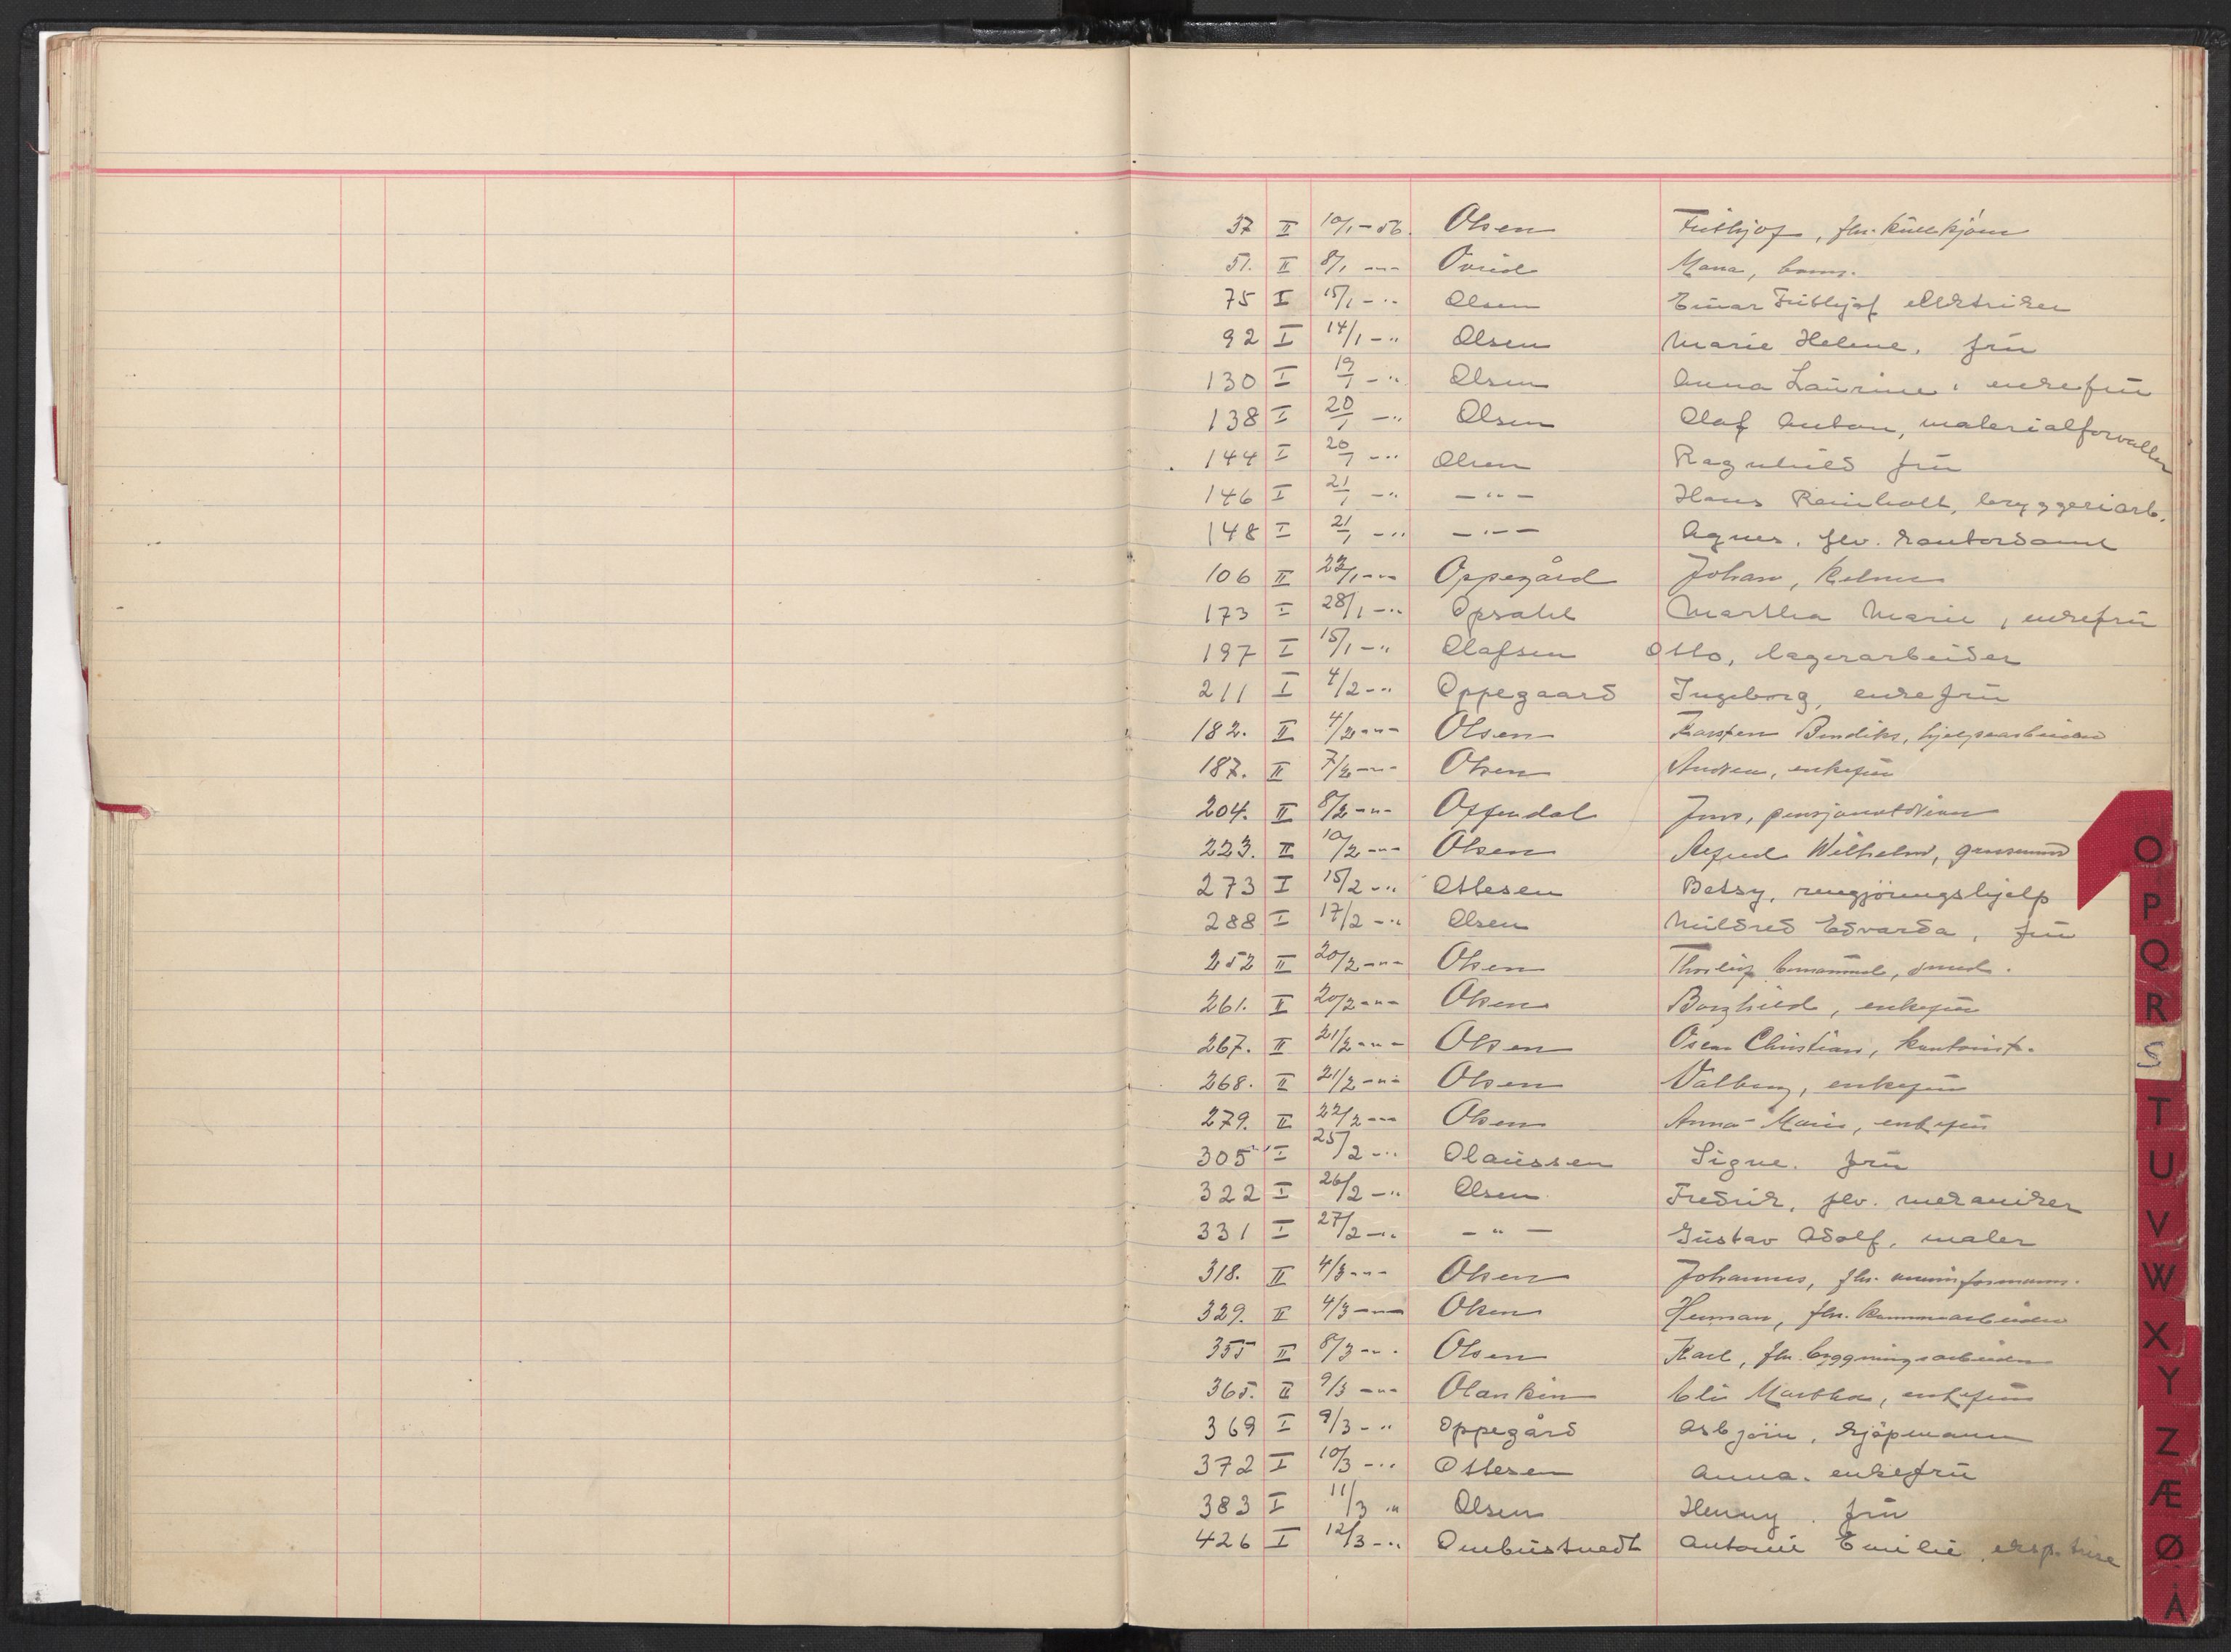 37 II 10/1-56. Olsen Frithjof, fhv.
51. II 8/1 -"- Maria,
75 I 15/1 -" Olsen Einar Frithjof elektriker
92 I 14/1 -" Olsen Marie Helene, frü
130 I 19/1 -" Olsen Anna Laürine, enkefrü
138 I 20/1 -" Olsen Olaf Anton, materialforvalter
144 I 20/1 -" Olsen Ragnhild frü
146 I 21/1 -" -"- Hans Reinholt, bryggeriarb.
148 I 21/1 -" -"- Agnes, fhv. kontordame
106 II 22/1 -"- Oppegård Johan, kelner
173 I 28/1 -" Opsahl Martha Marie, enkefrü
197 I 15/1 -" Olafsen Otto, lagerarbeider
211 I 4/2 -" Oppegaard Ingeborg, enkefrü
182. II 4/2 -"- Olsen Karsten Bendiks, hjelpearbeider
187. II 7/2 -"- Olsen Andrea, enkefrü
204. II 8/2 -"- Offerdal Jens,
223. II 10/2 -"- Olsen Alfred Wilhelm,
273 I 15/2 -" Ottesen Betsy, rengjöringshjelp
288 I 17/2 -" Olsen Mildred Edvarda, frü
252 II 20/2 -"- Olsen Thorleif Emanuel, smed.
261. II 20/2 -"- Olsen Borghild, enkefrü
267. II 21/2 -"- Olsen Oscar Christian, kontorist.
268. II 21/2 -"- Olsen Valborg, enkefrü
279. II 22/2 -"- Olsen Anna-Marie, enkefrü
305 I 25/2 -" Olaüssen Signe, frü
322 I 26/2 -" Olsen Fredrik, fhv. mekaniker
331 I 27/2 -" -"- Güstav Adolf, maler
318. II 4/3 -"- Olsen Johannes, fhv.
329. II 4/3 -"- Olsen Herman, fhv.
355 II 8/3 -"- Olsen Karl, fhv. bygningsarbeider
365. II 9/3 -"- Eli Martha, enkefrü
369 I 9/3 -" Oppegård Asbjörn, kjöpmann
372 I 10/3 -" Ottesen Anna, enkefrü
383 I 11/3 " Olsen Henny, frü
426 I 12/3 -" Antonie Emilie,
O
P
Q
R
S
T
U
V
W
X
Y
Z
Æ
Ø
Å